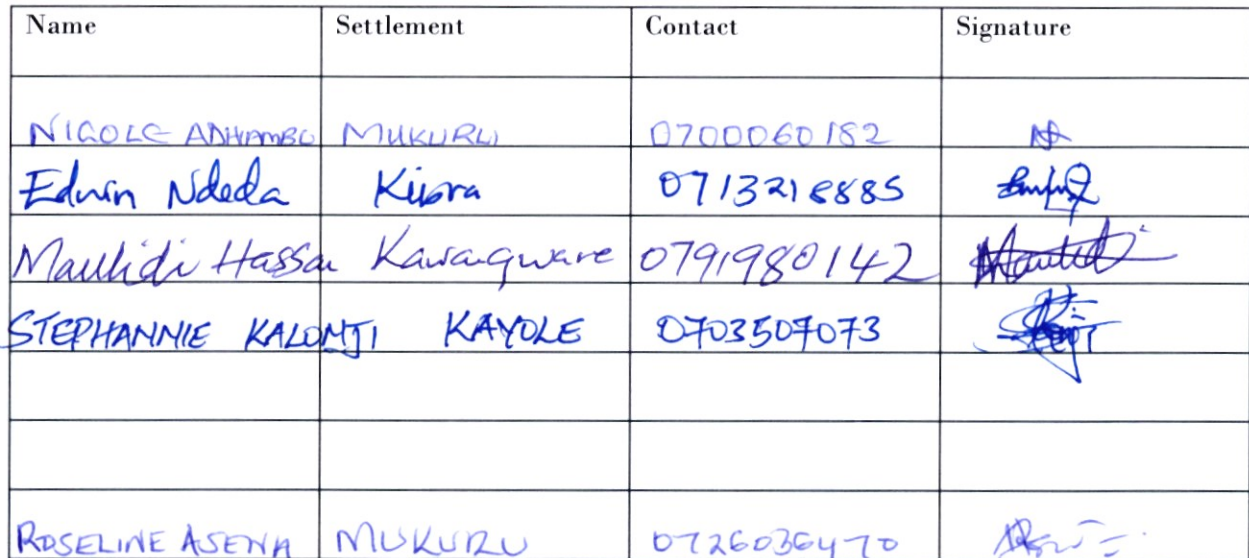 Name Settlement Contact Signature
NICOLE ADHIAMBO MUKURU 0700060182
Edwin Ndeda Kibra 0713218885
Maulidi Hassan Kawangware 0791980142
STEPHANNIE KALONJI KAYOLE 0703507073
ROSELINE ASENA MUKURU 0726036470